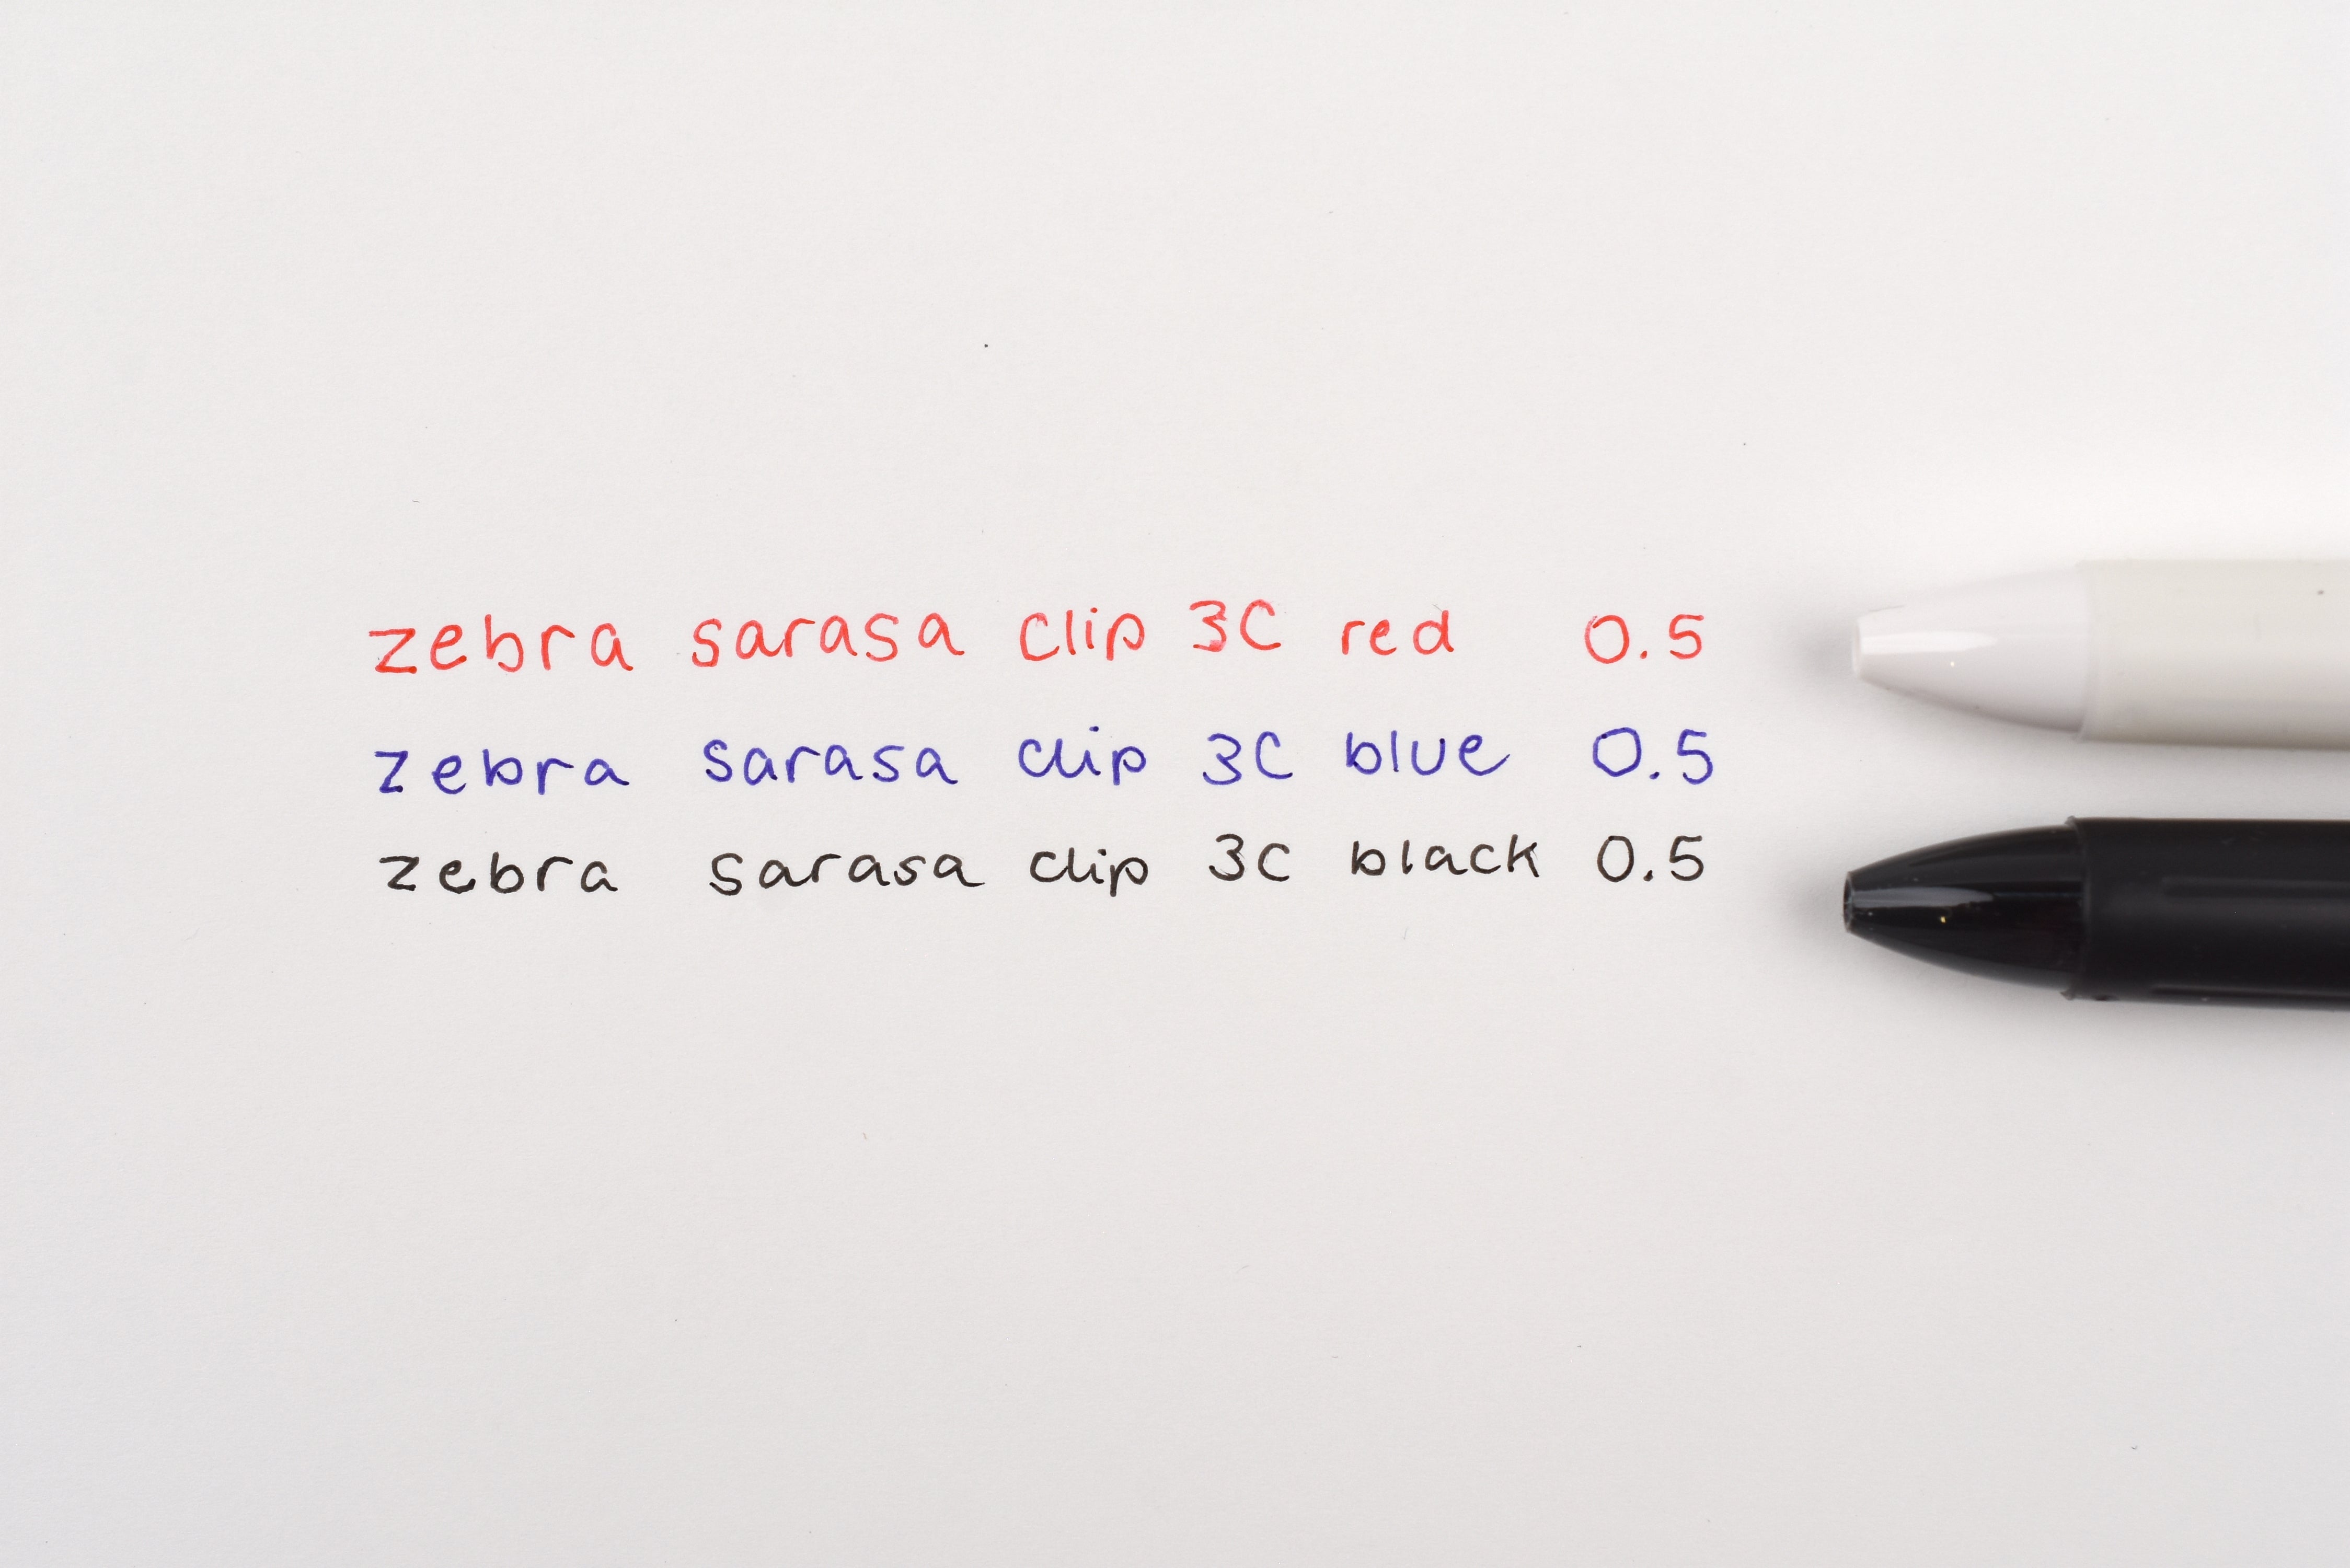 zebra sarasa clip 3C red 0.5
zebra sarasa clip 3C blue 0.5
zebra sarasa clip 3C black 0.5